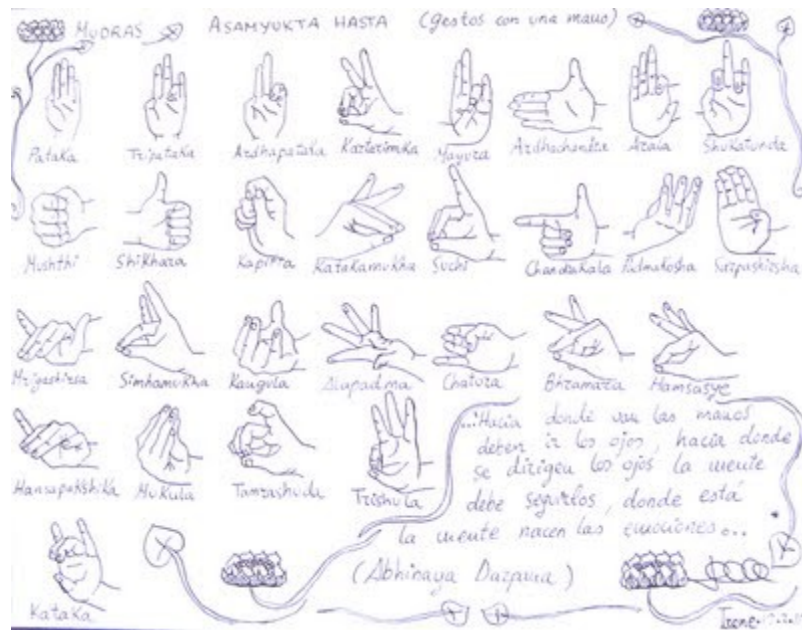 MUDRAS ASAMYUKTA HASTA (gestos con una mano)
Pataka Tripataka Ardhapataka Kartarimka Mayura Ardhachandra Arala Shukatunda
Mushthi Shikhara Kapitta Katakamukha Suchi Chandrakala Padmakosha Sarpashirsha
Mrigashirsa Simhamukha Kangula Alapadma Chatura Bhramara Hamsasye
Hansapakshika Mukula Tamrashuda Trishula
...Hacia donde van las manos
deben ir los ojos, hacia donde
se dirigen los ojos la mente
debe seguirlos, donde está
la mente nacen las emociones...
(Abhinaya Darpura)
Kataka
Irene